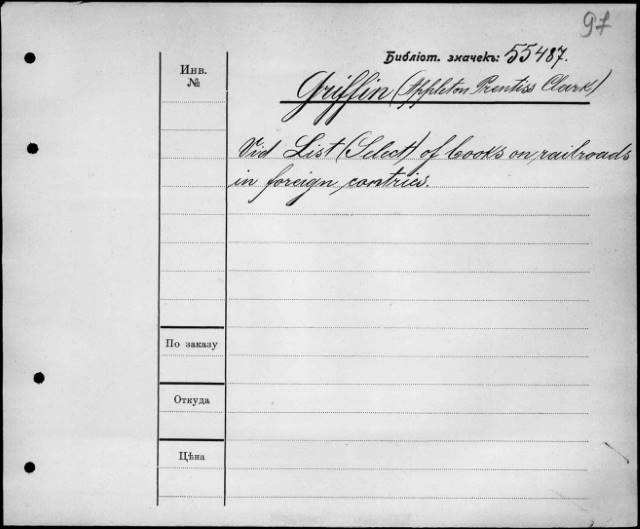 97
Библіот. значекъ: 55487.
Инв.
№
Griffin (Appleton Prentiss Clark)
Vid List (Select) of books on railroads
in foreign contries.
По заказу
Откуда
Цѣна